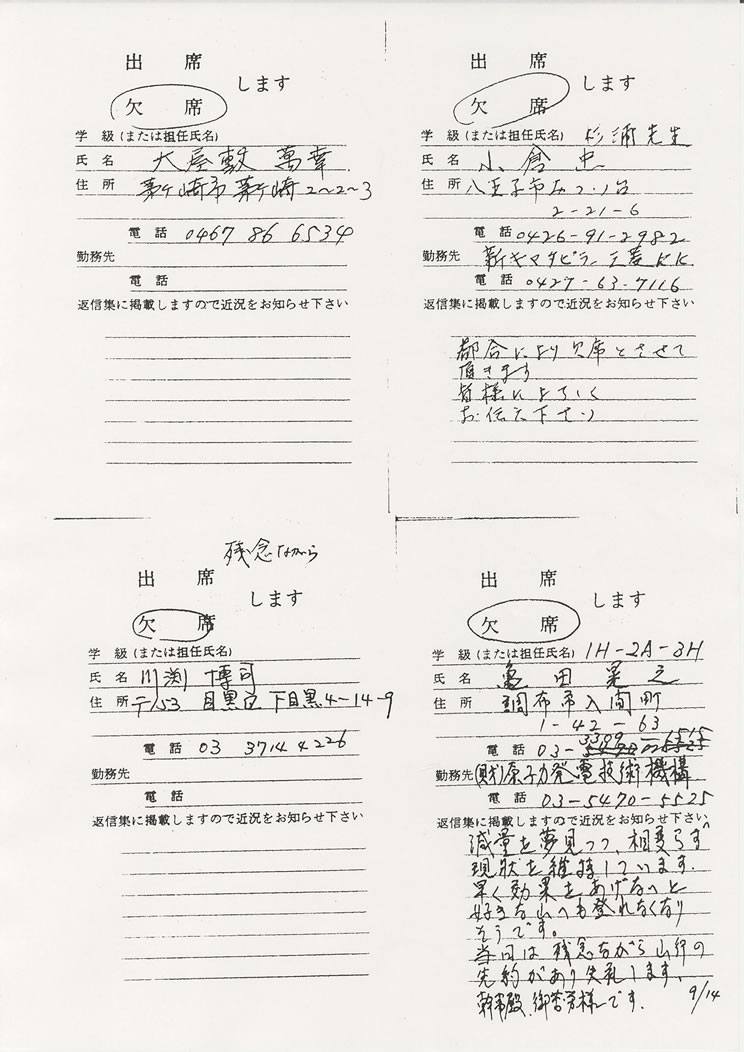 出席
します
欠席
学級(または担任氏名)
氏名 大屋敷 萬幸
住所 茅ケ崎市茅ケ崎2~2~3
電話 0467 86 6534
勤務先
電話
返信集に掲載しますので近況をお知らせ下さい
出席
します
欠席
学級(または担任氏名) 杉浦先生
氏名 小倉 忠
住所 八王子市みつい台
2-21-6
電話 0426-91-2982
勤務先 新キャタピラー三菱KK
電話 0427-63-7116
返信集に掲載しますので近況をお知らせ下さい
都合により欠席とさせて
頂きます
皆様によろしく
お伝え下さい
残念ながら
出席
します
欠席
学級(または担任氏名)
氏名 川渕 博司
住所 〒153 目黒区下目黒4-14-9
電話 03 3714 4226
勤務先
電話
返信集に掲載しますので近況をお知らせ下さい
出席
します
欠席
学級(または担任氏名) 1H-2A-3H
氏名 亀田
住所 調布市入間町
1-42-63
電話 03-3309-1515
勤務先 (財)原子力発電技術機構
電話 03-5470-5525
返信集に掲載しますので近況をお知らせ下さい
減量を夢見つつ、相変らず
現状を維持しています.
早く効果をあげないと
好きな山へも登れなくなり
そうです。
当日は残念ながら山行の
先約があり失礼します.
幹事殿、御苦労様です. 9/14